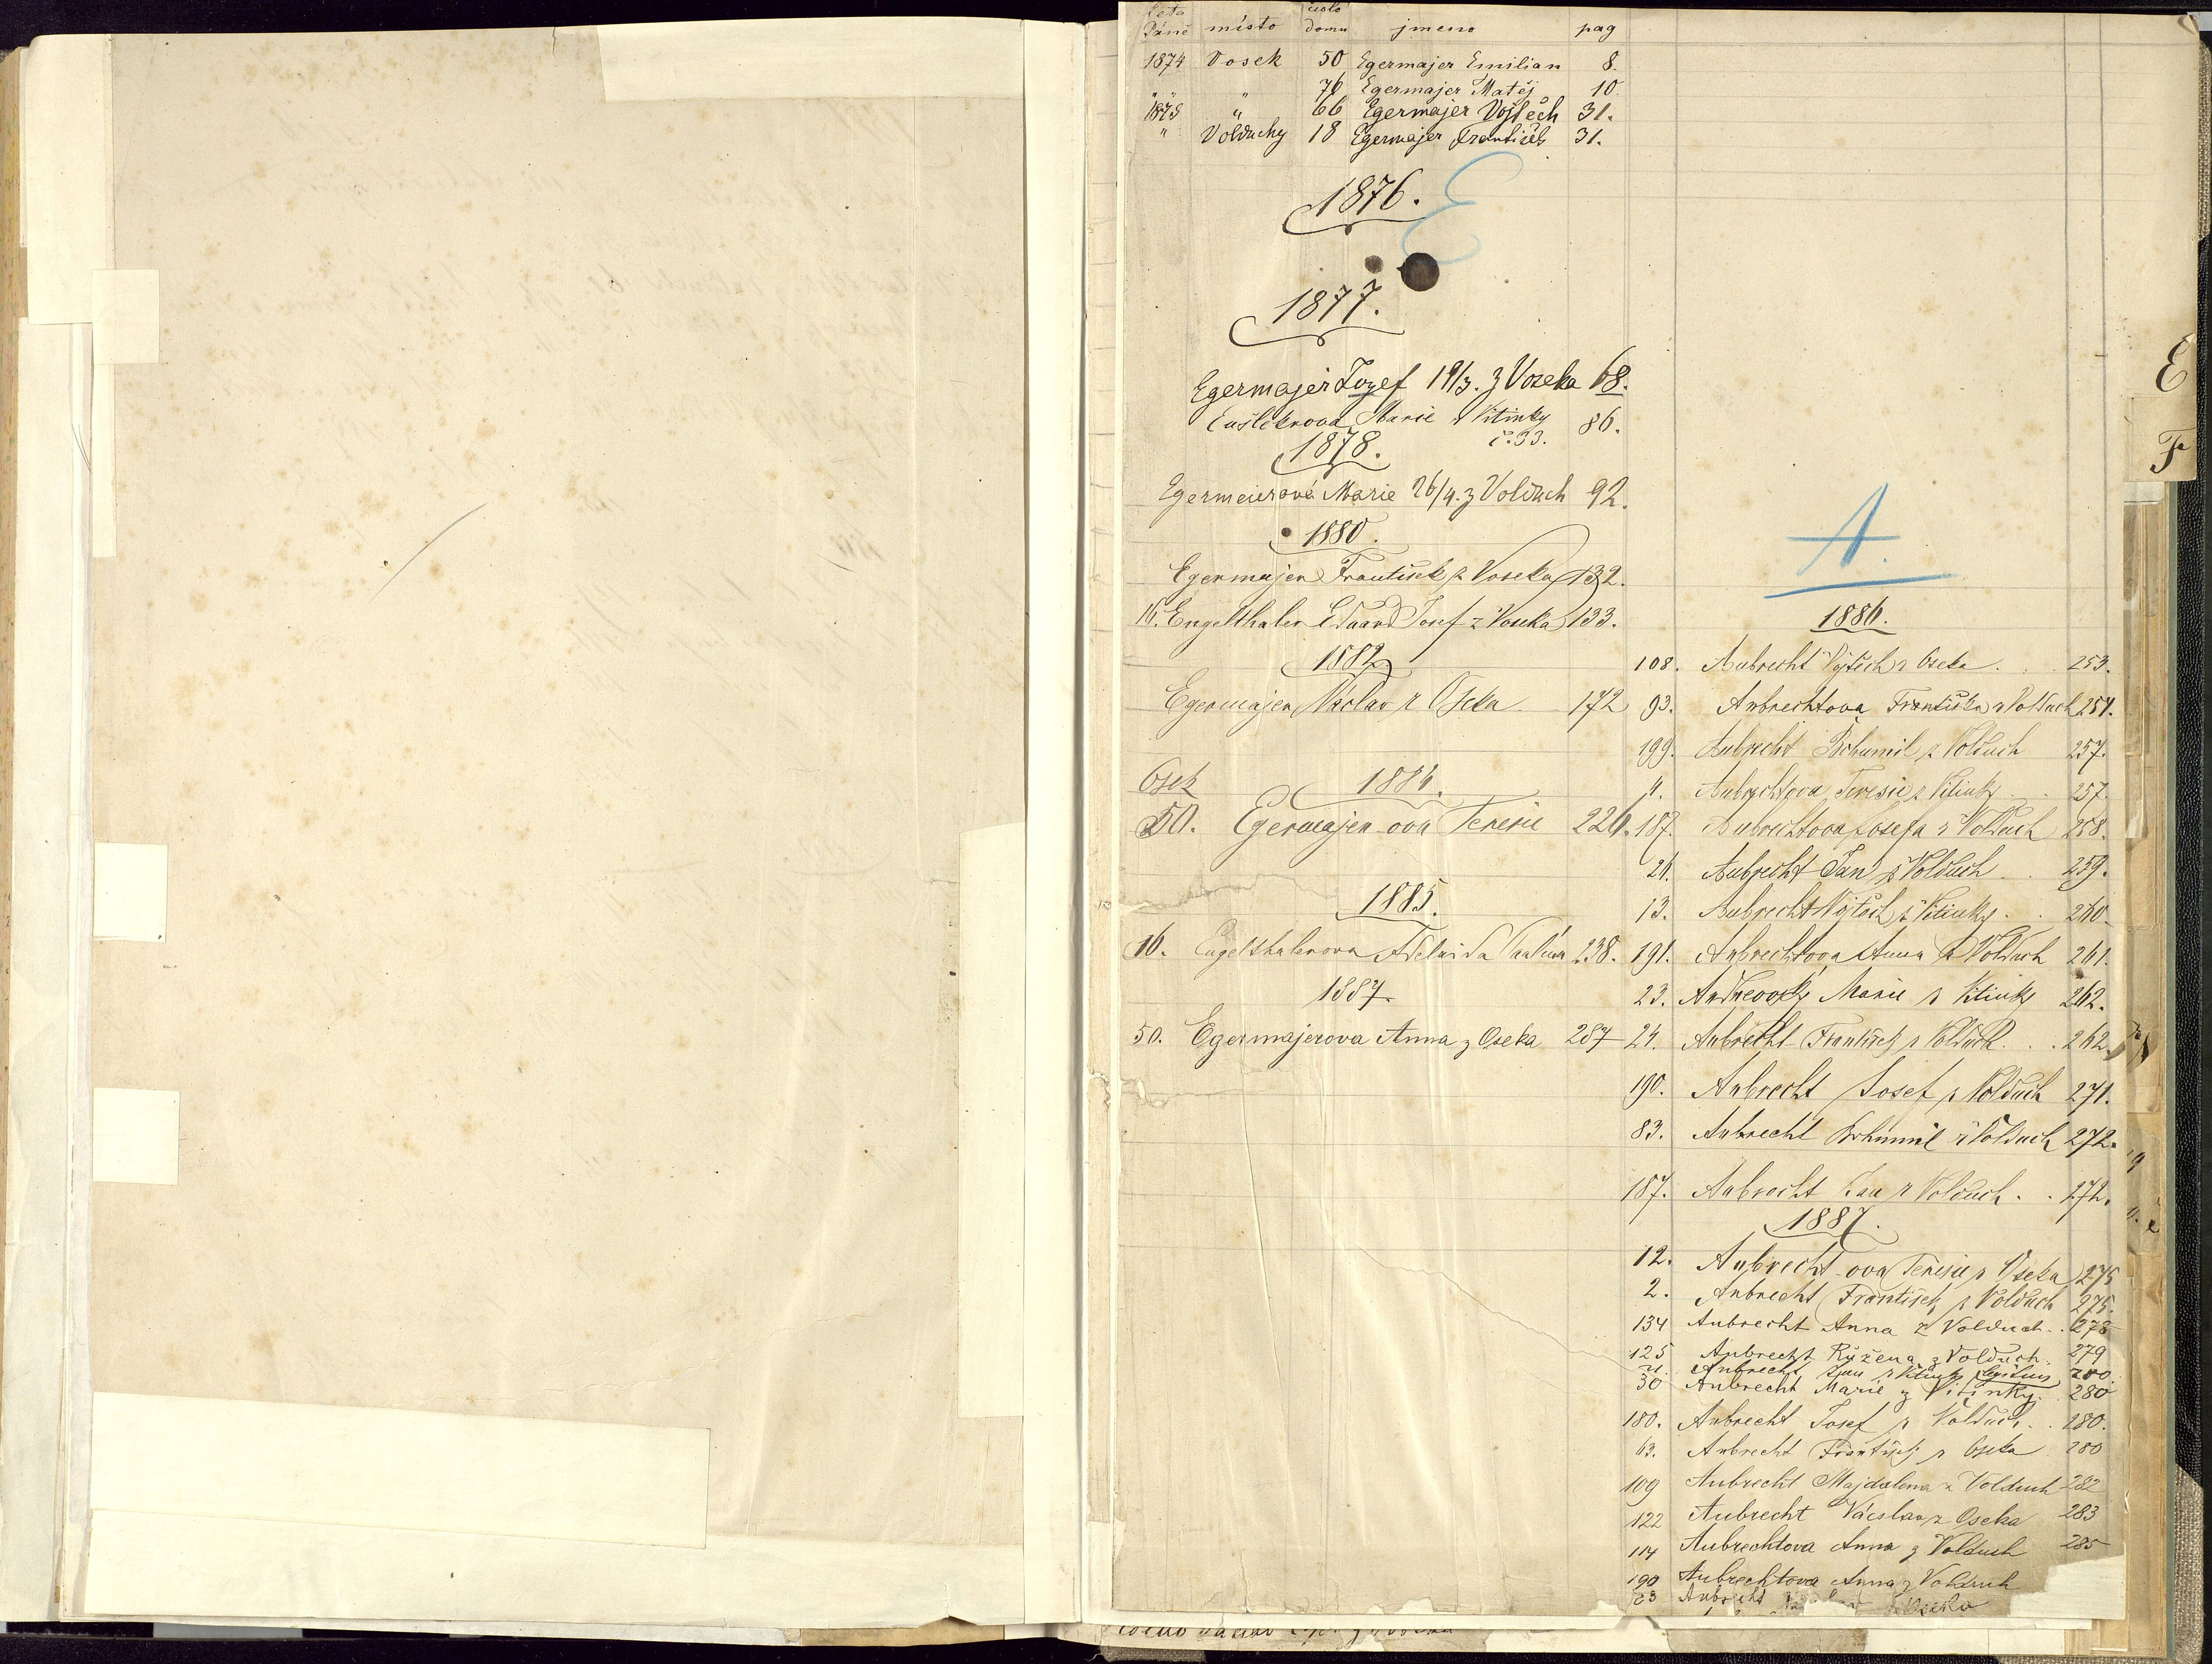 Leta Páně místo číslo domu jmeno pag
1874 Vosek 50 Egermajer Emilian 8.
" " 76 Egermajer Matěj 10.
1875 " 66 Egermajer Vojtěch 31.
" Volduchy 18 Egermajer František 31.
E
1876.
1877.
Egermajer Jozef 19/3. z Voseka 68.
Marie z Vitinky č. 33. 86.
1878.
Egermeierová Marie 26/4. z Volduch 92.
1880.
Egermajer František z Voseka 132.
16. Engelthaler Eduard Josef z Voseka 133.
1882
Egermajer Václav z Oseka 172
Osek 1884.
50. Egermajer-ova Teresie 226.
1885.
16. Engelthalerova Adelaida 238.
1887.
50. Egermajerova Anna z Oseka 287
E
F
A.
1886.
108. Aubrecht Vojtěch z Oseka . . 253.
93. Aubrechtova Františka z Volduch 254.
199. Aubrecht Bohumil z Volduch 257.
11. Aubrechtova Teresie z Vitinky . . 257.
187. Aubrechtova Josefa z Volduch 258.
26. Aubrecht Jan z Volduch . . 259.
13. Aubrecht Vojtěch z Vitinky . . 260.
191. Aubrechtova Anna z Volduch 261.
23. Marie z Vitinky 262.
24. Aubrecht František z Volduch . . 262.
190. Aubrecht Josef z Volduch 271.
83. Aubrecht Bohumil z Volduch 272.
187. Aubrecht Jan z Volduch . . 272.
1887.
12. Aubrecht-ova Teresie z Oseka 275
2. Aubrecht František z Volduch 275.
134 Aubrecht Anna z Volduch . . 278
125 Aubrecht Růžena z Volduch. 279
Aubrecht Jan z Vitinky 280.
30 Aubrecht Marie z Vitinky. 280
180. Aubrecht Josef z Volduch . . 280.
63. Aubrecht František z Oseka 280
109 Aubrecht Majdalena z Volduch 282
122 Aubrecht Václav z Oseka 283
114 Aubrechtova Anna z Volduch 285
190 Aubrechtova Anna z Volduch
Aubrecht z Oseka